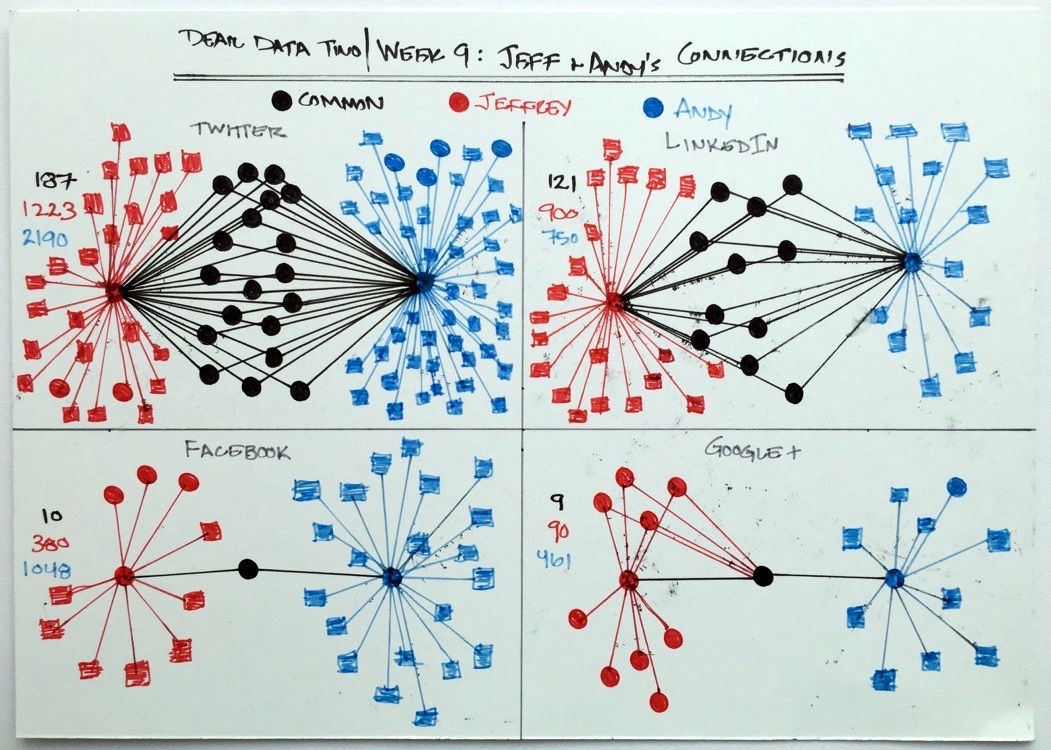 DEAR DATA TWO | WEEK 9: JEFF + ANDY'S CONNECTIONS
COMMON JEFFREY ANDY
TWITTER
187
1223
2190
LINKEDIN
121
900
750
FACEBOOK
10
380
1048
GOOGLE+
9
90
461